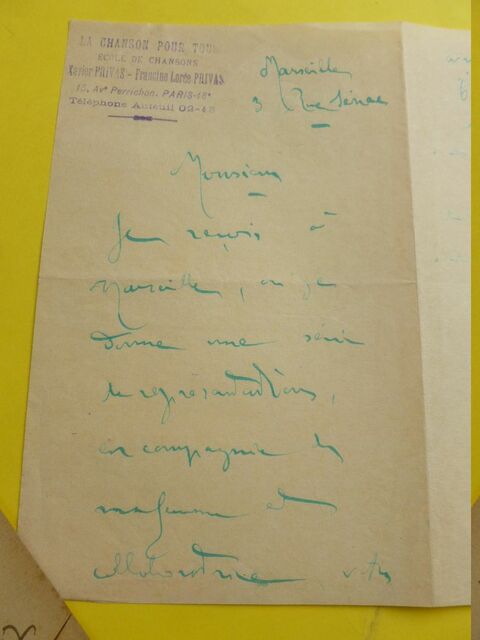 LA CHANSON POUR TOUS
ECOLE DE CHANSONS
Xavier PRIVAS - Francine Lorée PRIVAS
15, Avᵉ Perrichon, PARIS-16ᵉ
Téléphone Auteuil 02-48
Marseille
3 Rue Sénac
Monsieur
Je reçois à
Marseille, où je
donne une série
de représentations,
en compagnie de
ma femme et
collaboratrice, votre